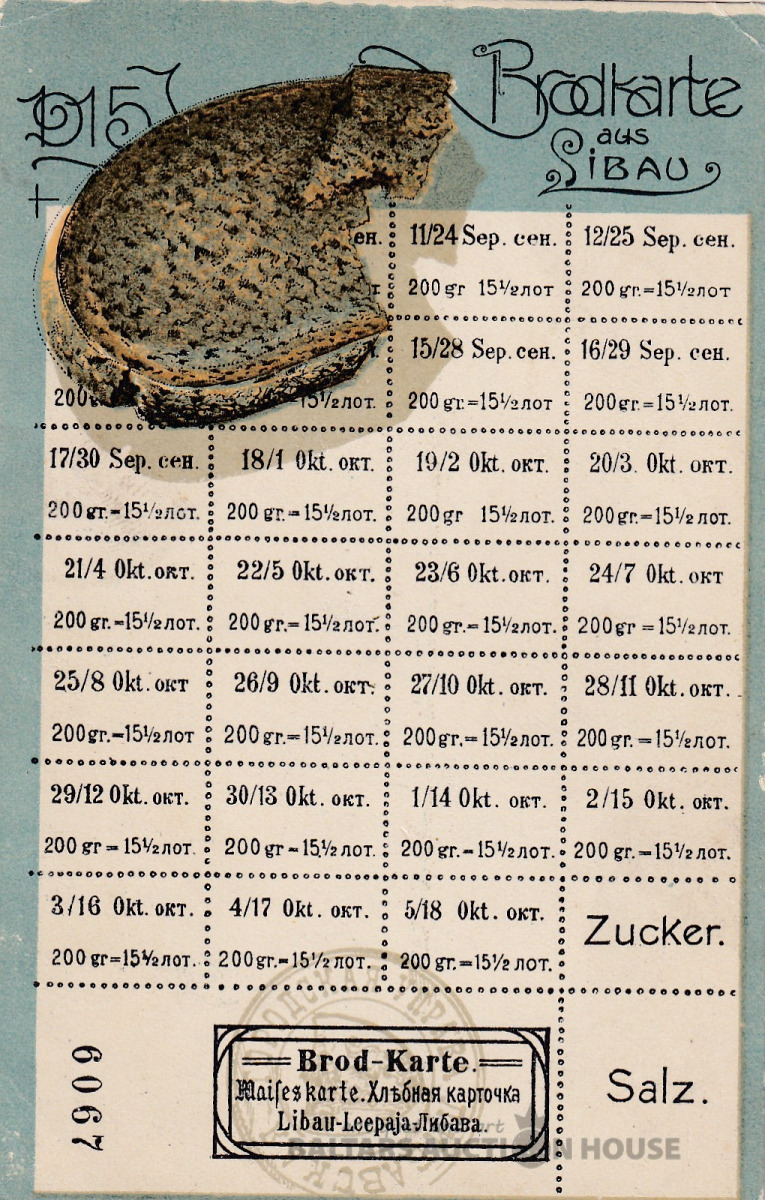 1915
Brodkarte
aus
LIBAU
ен. 11/24 Sep. сен. 12/25 Sep. сен.
200 gr 15½ лот 200 gr.=15½ лот
15/28 Sep. сен. 16/29 Sep. сен.
15½ лот. 200 gr.=15½ лот 200 gr.=15½ лот.
17/30 Sep. сен. 18/1 Okt. окт. 19/2 Okt. окт. 20/3. Okt. окт.
200 gr.=15½ лот. 200 gr.=15½ лот. 200 gr 15½ лот. 200 gr.=15½ лот.
21/4 Okt. окт. 22/5 Okt. окт. 23/6 Okt. окт. 24/7 Okt. окт
200 gr.=15½ лот. 200 gr.=15½ лот. 200 gr.=15½ лот. 200 gr =15½ лот.
25/8 Okt. окт 26/9 Okt. окт. 27/10 Okt. окт. 28/11 Okt. окт.
200 gr.=15½ лот 200 gr.=15½ лот. 200 gr.=15½ лот. 200 gr.=15½ лот.
29/12 Okt. окт. 30/13 Okt. окт. 1/14 Okt. окт. 2/15 Okt. окт.
200 gr=15½ лот. 200 gr=15½ лот. 200 gr.=15½ лот. 200 gr.=15½ лот.
3/16 Okt. окт. 4/17 Okt. окт. 5/18 Okt. окт. Zucker.
200 gr=15½ лот. 200 gr.=15½ лот. 200 gr.=15½ лот.
6067
Brod-Karte.
Maises karte. Хлѣбная карточка
Libau-Leepaja-Либава.
Salz.
BALTARS AUCTION HOUSE